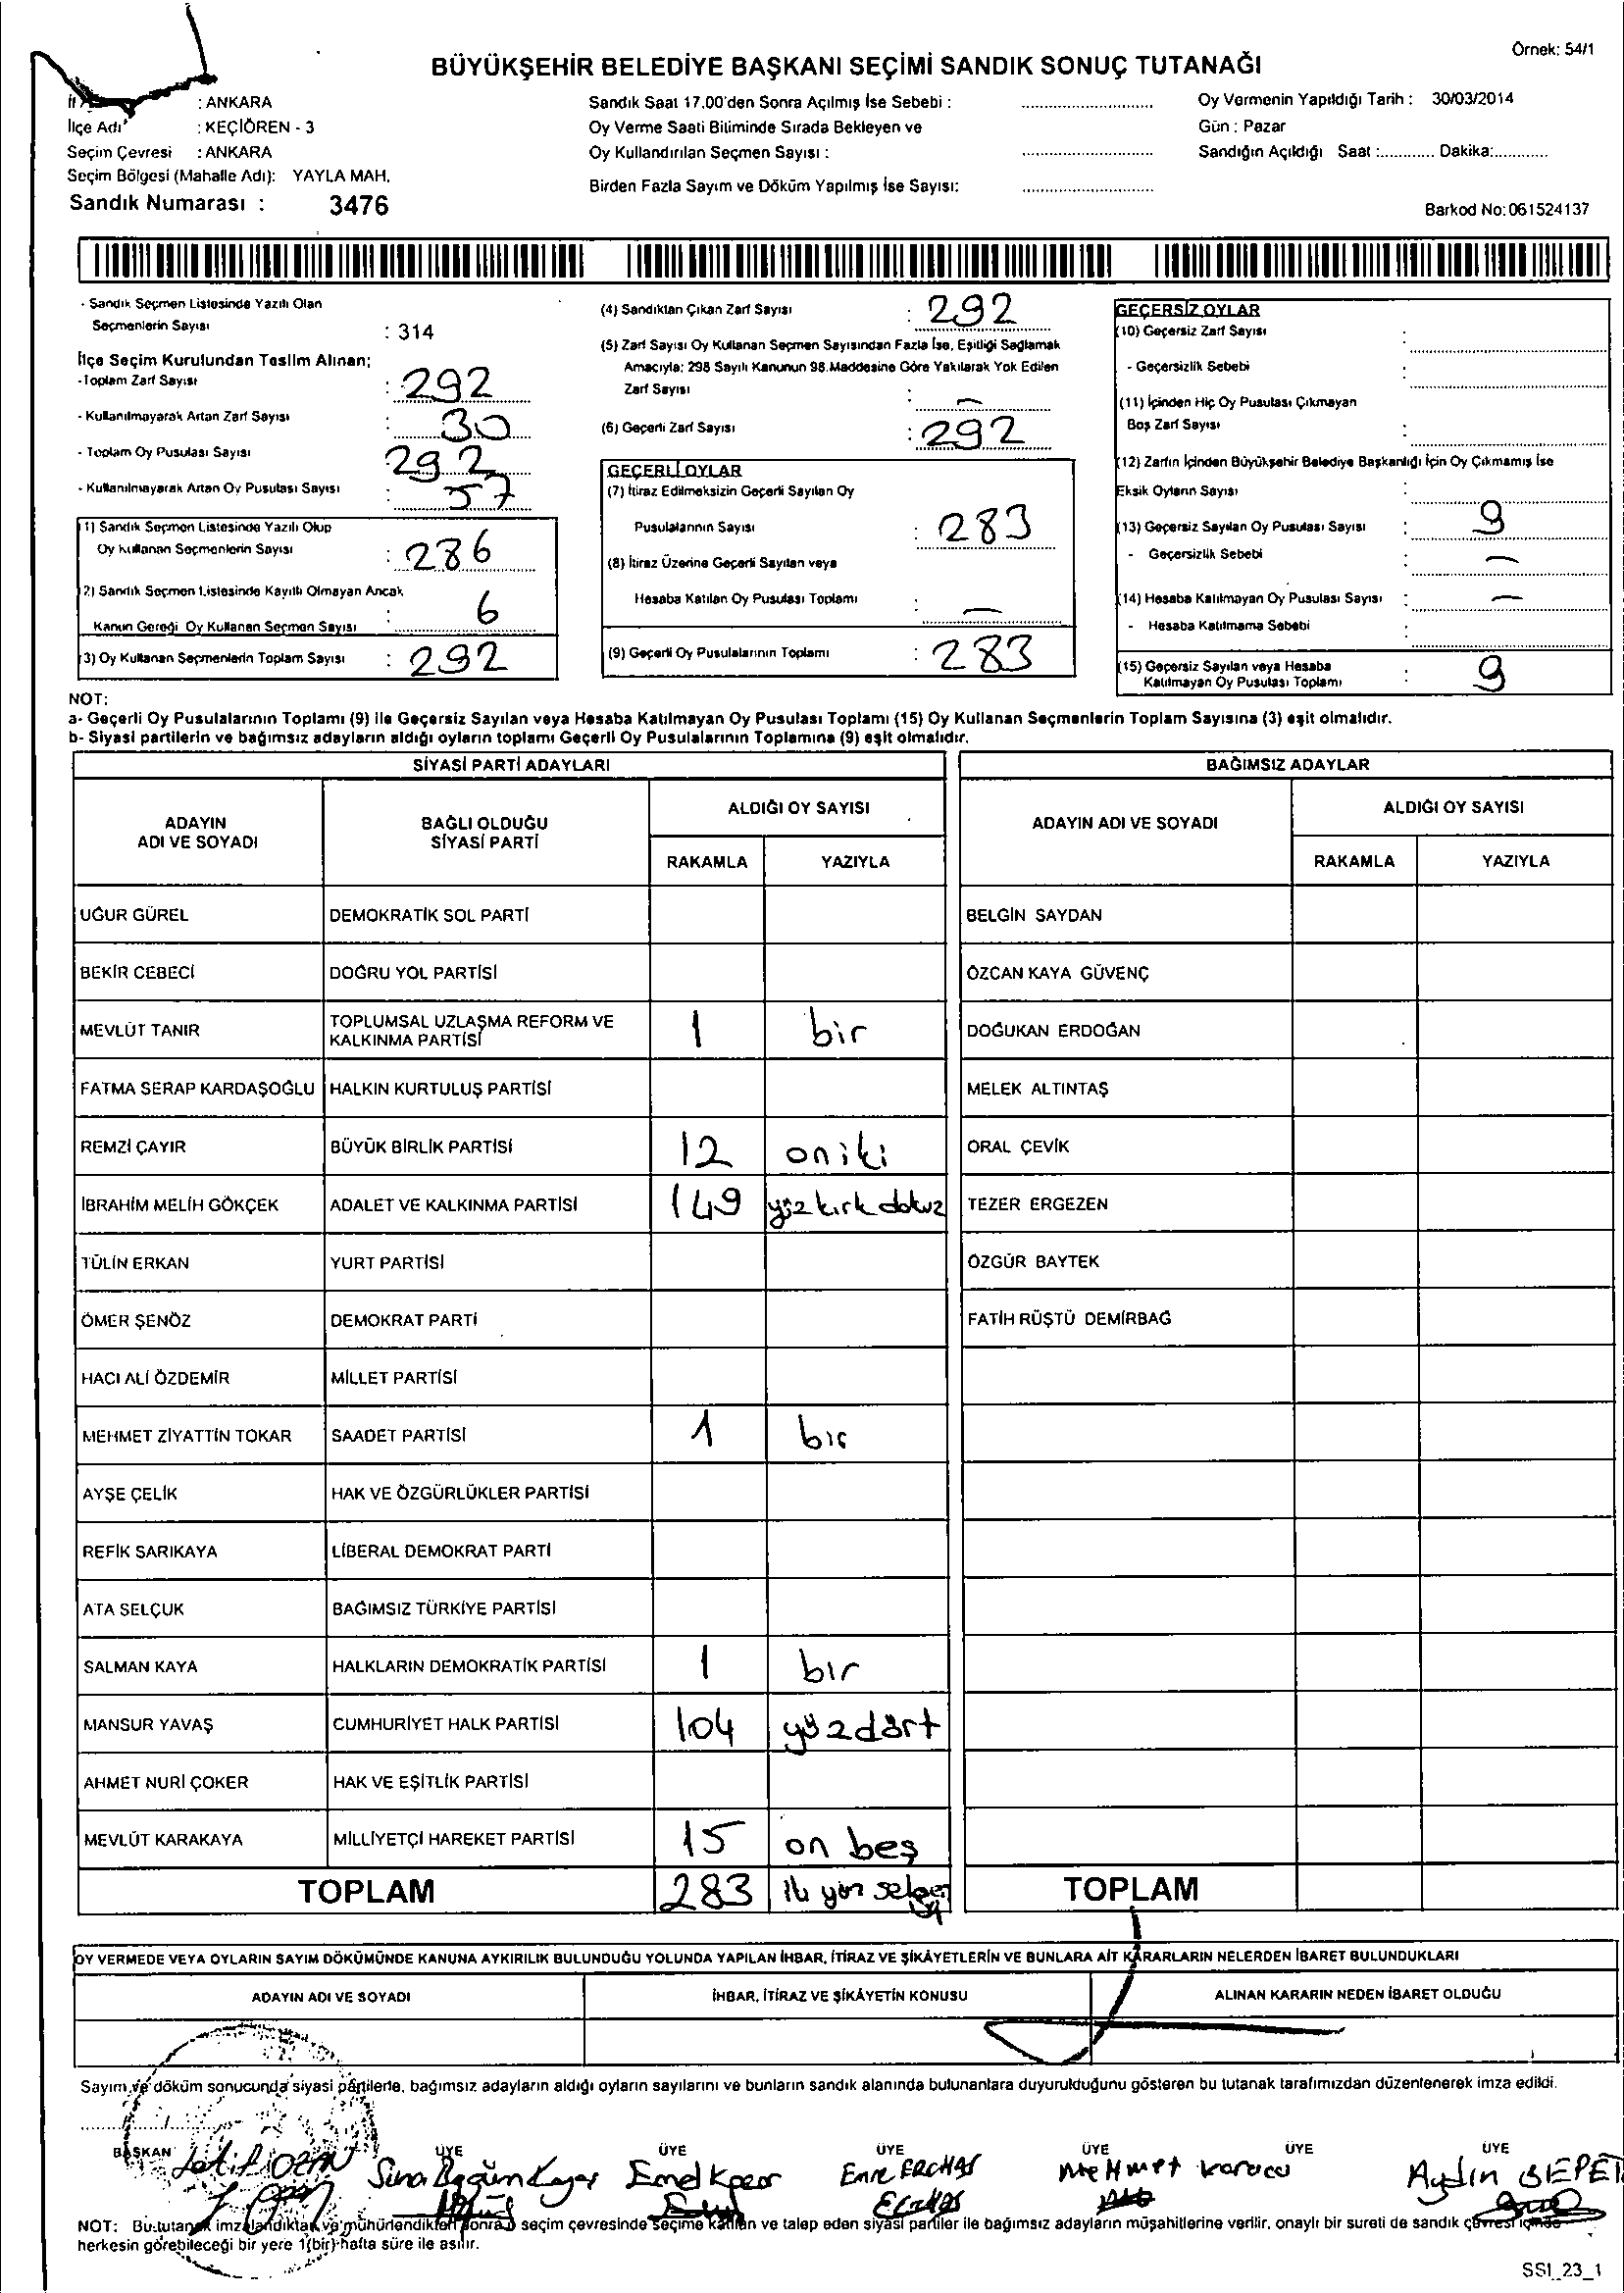 Örnek: 54/1
BÜYÜKŞEHİR BELEDİYE BAŞKANI SEÇİMİ SANDIK SONUÇ TUTANAĞI
: ANKARA
İlçe Adı : KEÇİÖREN - 3
Seçim Çevresi : ANKARA
Seçim Bölgesi (Mahalle Adı): YAYLA MAH.
Sandık Numarası : 3476
Sandık Saat 17.00'den Sonra Açılmış İse Sebebi :
Oy Verme Saati Bitiminde Sırada Bekleyen ve
Oy Kullandırılan Seçmen Sayısı :
Birden Fazla Sayım ve Döküm Yapılmış İse Sayısı:
Oy Vermenin Yapıldığı Tarih : 30/03/2014
Gün : Pazar
Sandığın Açıldığı Saat :............ Dakika:............
Barkod No:061524137
- Sandık Seçmen Listesinde Yazılı Olan
Seçmenlerin Sayısı : 314
İlçe Seçim Kurulundan Teslim Alınan;
-Toplam Zarf Sayısı : 292
- Kullanılmayarak Artan Zarf Sayısı : 30
- Toplam Oy Pusulası Sayısı 292
- Kullanılmayarak Artan Oy Pusulası Sayısı : 57
1) Sandık Seçmen Listesinde Yazılı Olup
Oy Kullanan Seçmenlerin Sayısı : 286
2) Sandık Seçmen Listesinde Kayıtlı Olmayan Ancak
Kanun Gereği Oy Kullanan Seçmen Sayısı : 6
3) Oy Kullanan Seçmenlerin Toplam Sayısı : 292
(4) Sandıktan Çıkan Zarf Sayısı : 292
(5) Zarf Sayısı Oy Kullanan Seçmen Sayısından Fazla İse, Eşitliği Sağlamak
Amacıyla; 298 Sayılı Kanunun 98.Maddesine Göre Yakılarak Yok Edilen
Zarf Sayısı : –
(6) Geçerli Zarf Sayısı : 292
GEÇERLİ OYLAR
(7) İtiraz Edilmeksizin Geçerli Sayılan Oy
Pusulalarının Sayısı : 283
(8) İtiraz Üzerine Geçerli Sayılan veya
Hesaba Katılan Oy Pusulası Toplamı : –
(9) Geçerli Oy Pusulalarının Toplamı : 283
GEÇERSİZ OYLAR
(10) Geçersiz Zarf Sayısı :
- Geçersizlik Sebebi :
(11) İçinden Hiç Oy Pusulası Çıkmayan
Boş Zarf Sayısı :
(12) Zarfın İçinden Büyükşehir Belediye Başkanlığı İçin Oy Çıkmamış İse
Eksik Oyların Sayısı :
(13) Geçersiz Sayılan Oy Pusulası Sayısı : 9
- Geçersizlik Sebebi : –
(14) Hesaba Katılmayan Oy Pusulası Sayısı : –
- Hesaba Katılmama Sebebi :
(15) Geçersiz Sayılan veya Hesaba
Katılmayan Oy Pusulası Toplamı : 9
NOT:
a- Geçerli Oy Pusulalarının Toplamı (9) ile Geçersiz Sayılan veya Hesaba Katılmayan Oy Pusulası Toplamı (15) Oy Kullanan Seçmenlerin Toplam Sayısına (3) eşit olmalıdır.
b- Siyasi partilerin ve bağımsız adayların aldığı oyların toplamı Geçerli Oy Pusulalarının Toplamına (9) eşit olmalıdır.
SİYASİ PARTİ ADAYLARI
ADAYIN ADI VE SOYADI
BAĞLI OLDUĞU SİYASİ PARTİ
ALDIĞI OY SAYISI
RAKAMLA YAZIYLA
UĞUR GÜREL DEMOKRATİK SOL PARTİ
BEKİR CEBECİ DOĞRU YOL PARTİSİ
MEVLÜT TANIR TOPLUMSAL UZLAŞMA REFORM VE KALKINMA PARTİSİ 1 bir
FATMA SERAP KARDAŞOĞLU HALKIN KURTULUŞ PARTİSİ
REMZİ ÇAYIR BÜYÜK BİRLİK PARTİSİ 12 oniki
İBRAHİM MELİH GÖKÇEK ADALET VE KALKINMA PARTİSİ 149 yüz kırk dokuz
TÜLİN ERKAN YURT PARTİSİ
ÖMER ŞENÖZ DEMOKRAT PARTİ
HACI ALİ ÖZDEMİR MİLLET PARTİSİ
MEHMET ZİYATTİN TOKAR SAADET PARTİSİ 1 bir
AYŞE ÇELİK HAK VE ÖZGÜRLÜKLER PARTİSİ
REFİK SARIKAYA LİBERAL DEMOKRAT PARTİ
ATA SELÇUK BAĞIMSIZ TÜRKİYE PARTİSİ
SALMAN KAYA HALKLARIN DEMOKRATİK PARTİSİ 1 bır
MANSUR YAVAŞ CUMHURİYET HALK PARTİSİ 104 yüzdört
AHMET NURİ ÇOKER HAK VE EŞİTLİK PARTİSİ
MEVLÜT KARAKAYA MİLLİYETÇİ HAREKET PARTİSİ 15 on beş
TOPLAM 283
BAĞIMSIZ ADAYLAR
ADAYIN ADI VE SOYADI
ALDIĞI OY SAYISI
RAKAMLA YAZIYLA
BELGİN SAYDAN
ÖZCAN KAYA GÜVENÇ
DOĞUKAN ERDOĞAN
MELEK ALTINTAŞ
ORAL ÇEVİK
TEZER ERGEZEN
ÖZGÜR BAYTEK
FATİH RÜŞTÜ DEMİRBAĞ
TOPLAM
OY VERMEDE VEYA OYLARIN SAYIM DÖKÜMÜNDE KANUNA AYKIRILIK BULUNDUĞU YOLUNDA YAPILAN İHBAR, İTİRAZ VE ŞİKÂYETLERİN VE BUNLARA AİT KARARLARIN NELERDEN İBARET BULUNDUKLARI
ADAYIN ADI VE SOYADI İHBAR, İTİRAZ VE ŞİKÂYETİN KONUSU ALINAN KARARIN NEDEN İBARET OLDUĞU
Sayım ve döküm sonucunda siyasi partilerle, bağımsız adayların aldığı oyların sayılarını ve bunların sandık alanında bulunanlara duyurulduğunu gösteren bu tutanak tarafımızdan düzenlenerek imza edildi.
BAŞKAN ÜYE ÜYE ÜYE ÜYE ÜYE ÜYE
Emre ERCHAS Mehmet Karaca Aydın
NOT: Bu tutanak imzalandıktan ve mühürlendikten sonra seçim çevresinde seçime katılan ve talep eden siyasi partiler ile bağımsız adayların müşahitlerine verilir, onaylı bir sureti de sandık çevresi içinde
herkesin görebileceği bir yere 1(bir) hafta süre ile asılır.
SSI_23_1